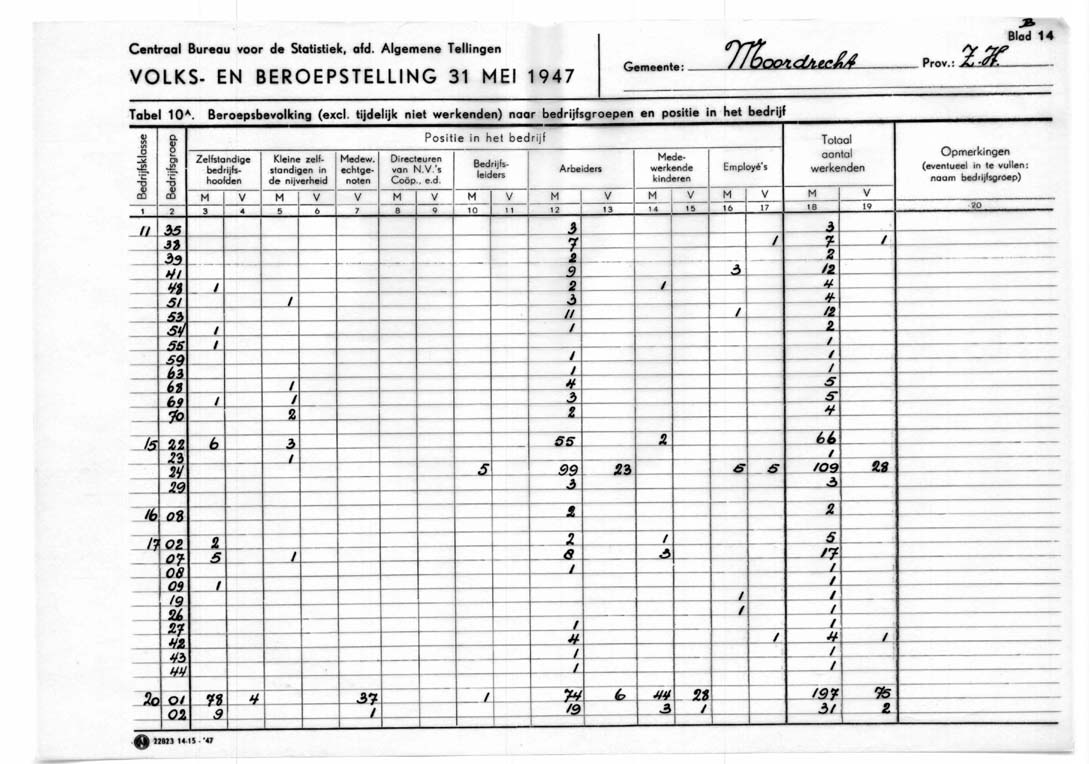 B
Blad 14
Centraal Bureau voor de Statistiek, afd. Algemene Tellingen
VOLKS- EN BEROEPSTELLING 31 MEI 1947
Gemeente: Moordrecht Prov.: Z.H.
Tabel 10A. Beroepsbevolking (excl. tijdelijk niet werkenden) naar bedrijfsgroepen en positie in het bedrijf
Bedrijfsklasse
Bedrijfsgroep
Positie in het bedrijf
Zelfstandige bedrijfs- hoofden
Kleine zelf- standigen in de nijverheid
Medew. echtge- noten
Directeuren van N.V.'s Coöp., e.d.
Bedrijfs- leiders
Arbeiders
Mede- werkende kinderen
Employé's
Totaal aantal werkenden
Opmerkingen (eventueel in te vullen: naam bedrijfsgroep)
M V M V V M V M V M V M V M V M V
1 2 3 4 5 6 7 8 9 10 11 12 13 14 15 16 17 18 19 20
11 35 3 3
38 7 1 7 1
39 2 2
41 9 3 12
48 1 2 1 4
51 1 3 4
53 11 1 12
54 1 1 2
55 1 1
59 1 1
63 1 1
68 1 4 5
69 1 1 3 5
70 2 2 4
15 22 6 3 55 2 66
23 1 1
24 5 99 23 5 5 109 28
29 3 3
16 08 2 2
17 02 2 2 1 5
07 5 1 8 3 17
08 1 1
09 1 1
19 1 1
26 1 1
27 1 1
42 4 1 4 1
43 1 1
44 1 1
20 01 78 4 37 1 74 6 44 28 197 75
02 9 1 19 3 1 31 2
22823 14-15 - '47